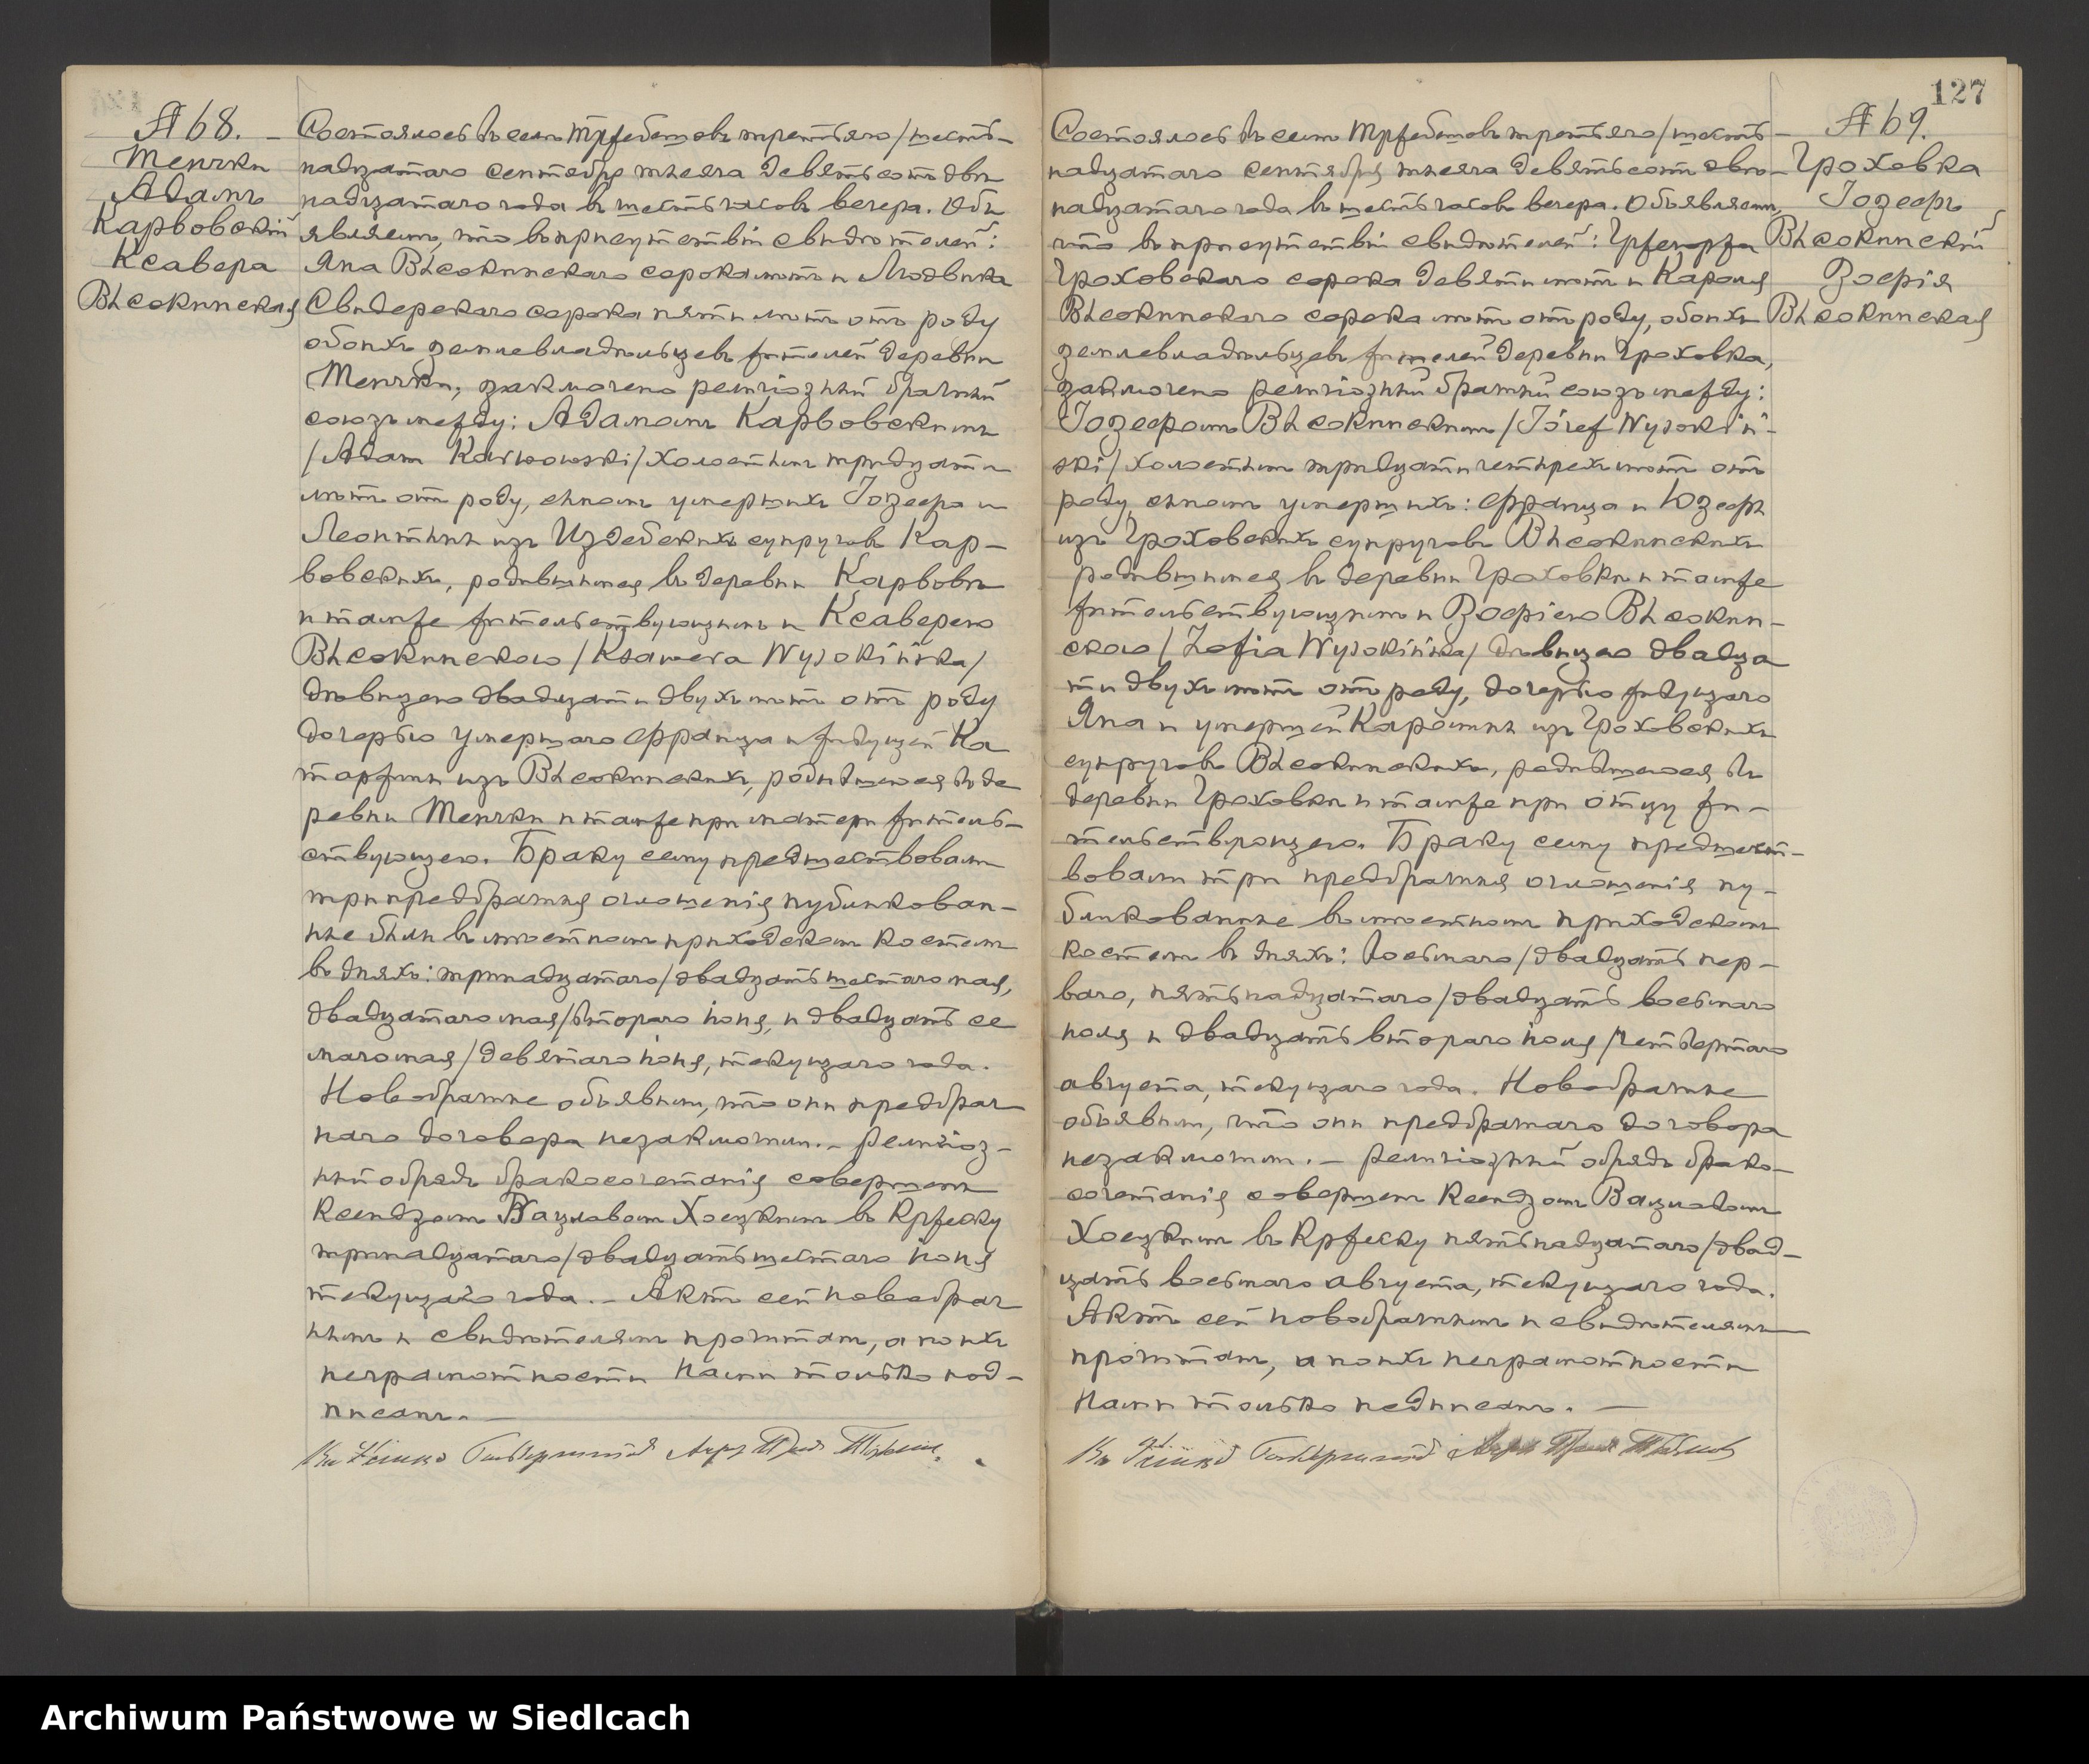 127
№ 68.
Тенчки
Адамъ
Карвовскій
Ксавера
Высокинская
Состоялось въ селѣ Тржебешовъ третьяго/шест-
надцатаго сентября тысяча девятьсотъ двѣ-
надцатаго года въ шесть часовъ вечера. Объ
являемъ, что въ присутствіи свидѣтелей:
Яна Высокинскаго сорока лѣтъ и Людвика
Свидерскаго сорока пяти лѣтъ отъ роду
обоихъ землевладѣльцевъ жителей деревни
заключено религіозный брачный
союзъ между: Адамомъ Карвовскимъ
/Adam Karwowski/ холостымъ тридцати
лѣтъ отъ роду, сыномъ умершихъ Іозефа и
Леонтины изъ Издебскихъ супруговъ Кар-
вовскихъ, родившимся въ деревни Карвовъ
и тамже жительствующимъ и Ксаверею
Высокинскою /Ksawera Wysokińska/
дѣвицею двадцати двухъ лѣтъ отъ роду
дочерью умершаго Франца и живущей Ка
таржины изъ Высокинскихъ, родившеюся въ де
ревни и тамже при матери житель-
ствующею. Браку сему предшествовали
три предбрачныя оглошенія публикован-
ные были въ мѣстномъ приходскомъ костелѣ
въ дняхъ: тринадцатаго/двадцать шестаго мая,
двадцатаго мая/втораго іюня, и двадцать се
маго мая/девятаго іюня, текущаго года.
Новобрачные объявили, что они предбрач
наго договора незаключили. – Религіоз-
ный обрядъ бракосочетанія совершенъ
Ксендзомъ Вацлавомъ Хоецкимъ въ Кржеску
тринадцатаго/двадцать шестаго іюня
текущаго года. – Актъ сей новобрач
нымъ и свидѣтелямъ прочитанъ, а по ихъ
неграмотности Нами только под-
писанъ. –
№ 69.
Гроховка
Іозефъ
Высокинскій
Зофія
Высокинская
Состоялось въ селѣ Тржебешовъ третьяго/шесть-
надцатаго сентября тысяча девятьсотъ двѣ-
надцатаго года въ шесть часовъ вечера. Объявляемъ,
что въ присутствіи свидѣтелей: Гржегоржа
Гроховскаго сорока девяти лѣтъ и Кароля
Высокинскаго сорока лѣтъ отъ роду, обоихъ
землевладѣльцевъ жителей деревни Гроховка,
заключено религіозный брачный союзъ между:
Іозефомъ Высокинскимъ /Józef Wysokiń-
ski/ холостымъ тридцати четырехъ лѣтъ отъ
роду, сыномъ умершихъ: Франца и Юзефы
изъ Гроховскихъ супруговъ Высокинскихъ
родившимся въ деревни Гроховки и тамже
жительствующимъ и Зофіею Высокин-
скою /Zofia Wysokińska/ дѣвицею двадца
ти двухъ лѣтъ отъ роду, дочерью живущаго
Яна и умершей Каролины изъ Гроховскихъ
супруговъ Высокинскихъ, родившеюся въ
деревни Гроховки и тамже при отцу жи-
тельствующею. Браку сему предшест-
вовали три предбрачныя оглошенія пу-
бликованные въ мѣстномъ приходскомъ
костелѣ въ дняхъ: восьмаго/двадцать пер-
ваго, пятьнадцатаго/двадцать восьмаго
іюля и двадцать втораго іюля/четвертаго
августа, текущаго года. Новобрачные
объявили, что они предбрачнаго договора
незаключили. – Религіозный обрядъ брако-
сочетанія совершенъ Ксендзомъ Вацлавомъ
Хоецкимъ въ Кржеску пятьнадцатаго/двад-
цать восьмаго августа, текущаго года.
Актъ сей новобрачнымъ и свидѣтелямъ
прочитанъ, а по ихъ неграмотности
Нами только подписанъ. –
Archiwum Państwowe w Siedlcach